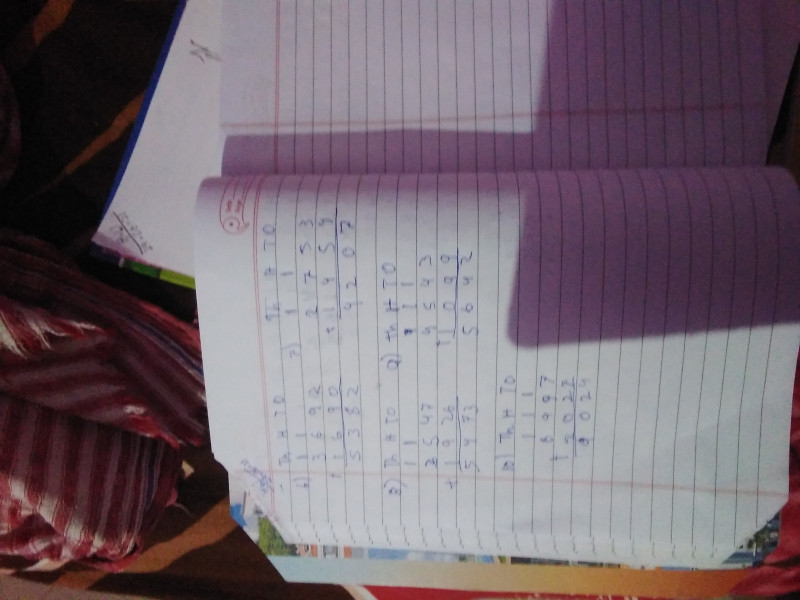 Th H T O
6) 1 1
3 6 9 2
+ 1 6 9 0
5 3 8 2
Th H T O
7) 1 1
2 7 5 3
+ 1 4 5 4
4 2 0 7
8) Th H T O
1 1
3 5 4 7
+ 1 9 2 6
5 4 7 3
9) Th H T O
1 1 1
4 5 4 3
+ 1 0 9 9
5 6 4 2
10) Th H T O
1 1 1
6 9 9 7
+ 2 0 2 7
9 0 2 4